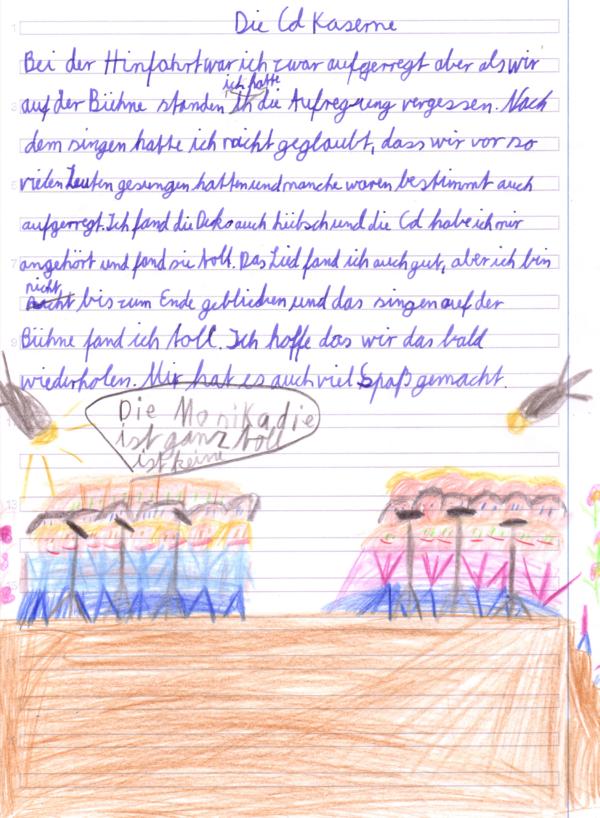 Die Cd Kaserne
Bei der Hinfahrt war ich zwar aufgerregt aber als wir
auf der Bühne standen ich hatte die Aufregung vergessen. Nach
dem singen hatte ich nicht geglaubt, dass wir vor so
vielen Leuten gesungen hatten und manche waren bestimmt auch
aufgerregt. Ich fand die Deko auch hübsch und die Cd habe ich mir
angehört und fand sie toll. Das Lied fand ich auch gut, aber ich bin
nicht bis zum Ende geblieben und das singen auf der
Bühne fand ich toll. Ich hoffe das wir das bald
wiederholen. Mir hat es auch viel Spaß gemacht.
Die Monika die
ist ganz toll
ist keine